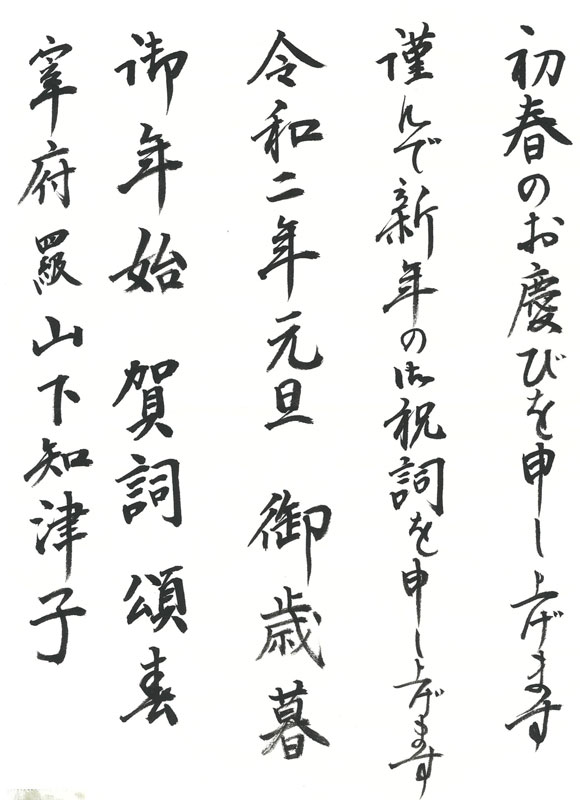 初春のお慶びを申し上げます
謹んで新年の御祝詞を申し上げます
令和二年元旦 御歳暮
御年始 賀詞 頌春
宰府 四級 山下知津子